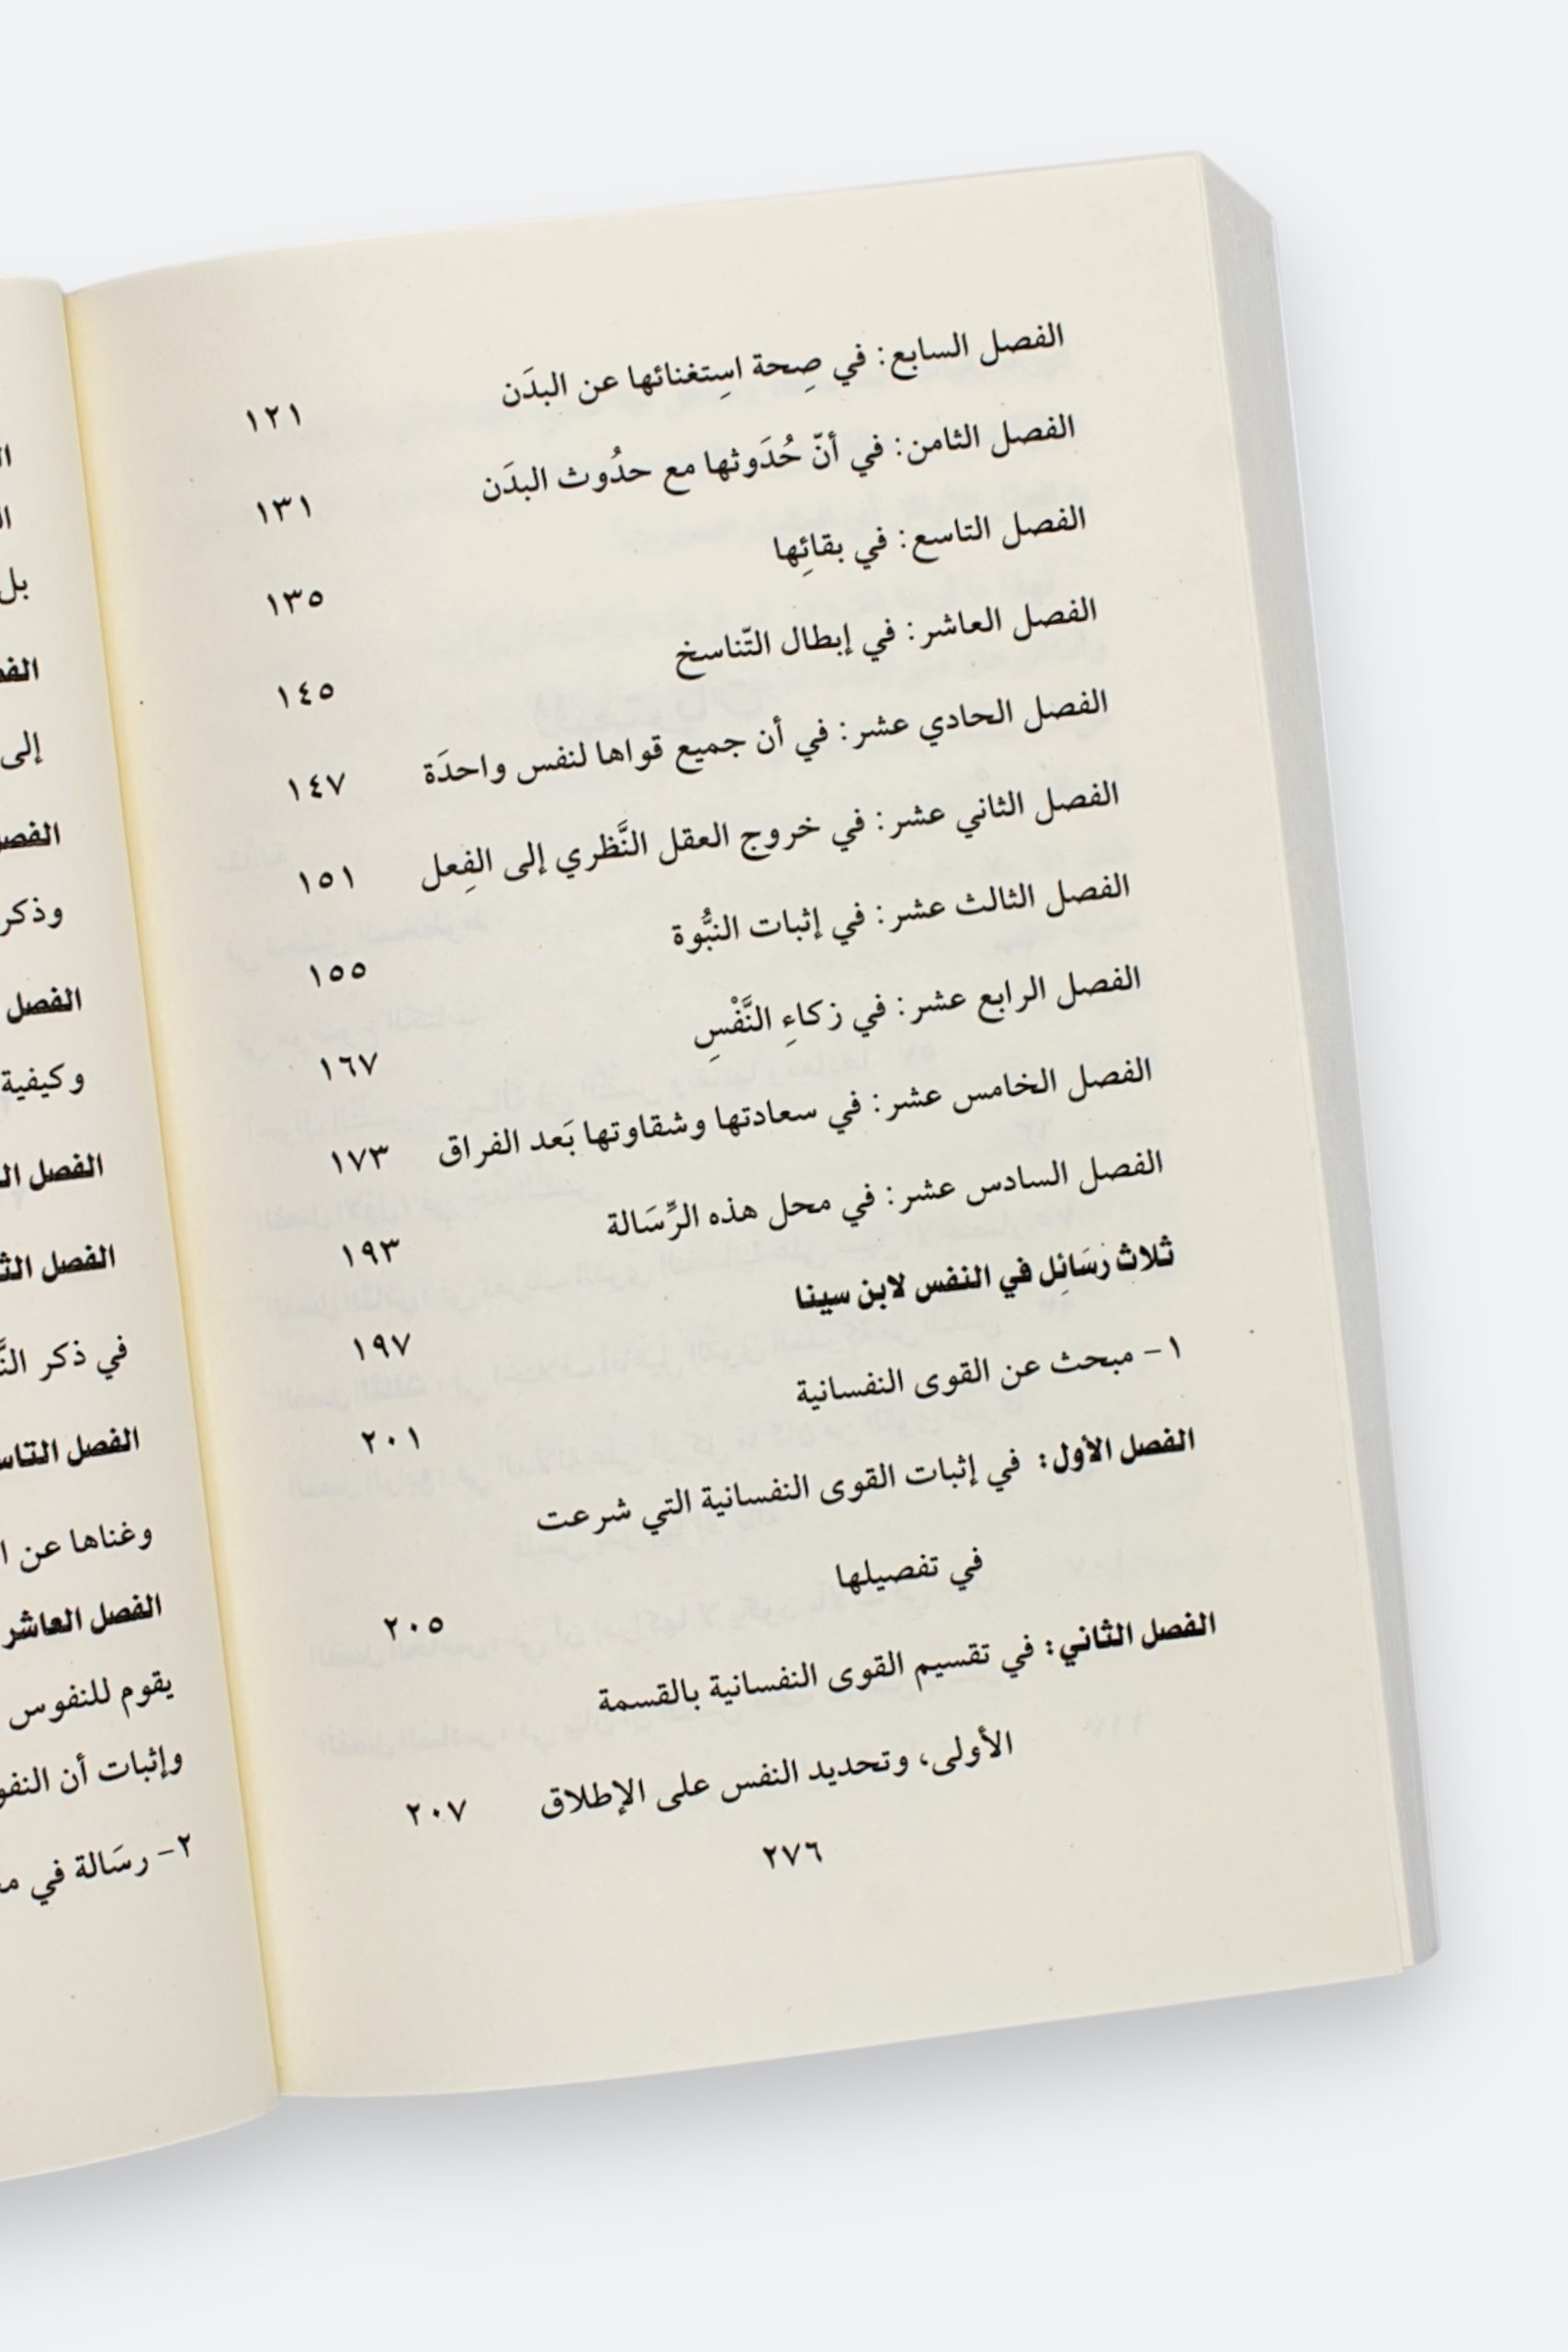 الفصل السابع: في صِحة اسِتغنائها عن البدَن ١٢١
الفصل الثامن: في أنّ حُدَوثها مع حدُوث البدَن ١٣١
الفصل التاسع: في بقائِها ١٣٥
الفصل العاشر: في إبطال التّناسخ ١٤٥
الفصل الحادي عشر: في أن جميع قواها لنفس واحدَة ١٤٧
الفصل الثاني عشر: في خروج العقل النَّظري إلى الفِعل ١٥١
الفصل الثالث عشر: في إثبات النبُّوة ١٥٥
الفصل الرابع عشر: في زكاءِ النَّفْسِ ١٦٧
الفصل الخامس عشر: في سعادتها وشقاوتها بَعد الفراق ١٧٣
الفصل السادس عشر: في محل هذه الرِّسَالة ١٩٣
ثلاث رَسَائِل في النفس لابن سينا ١٩٧
١- مبحث عن القوى النفسانية ٢٠١
الفصل الأول: في إثبات القوى النفسانية التي شرعت
في تفصيلها ٢٠٥
الفصل الثاني: في تقسيم القوى النفسانية بالقسمة
الأولى، وتحديد النفس على الإطلاق ٢٠٧
٢٧٦
بل
إلى
وذكر
الفصل
وكيفية
الفصل
الفصل
في ذكر
الفصل
وغناها عن
الفصل العاشر
يقوم للنفوس
وإثبات أن
٢- رسَالة في